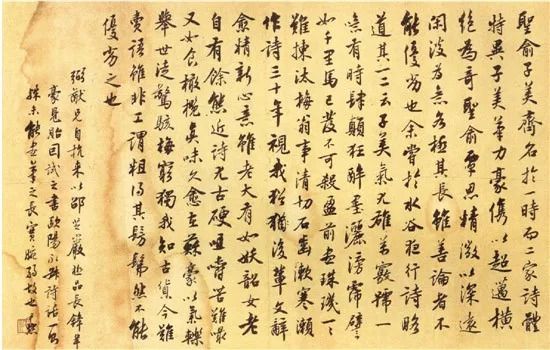 聖俞子美齊名於一時而二家詩體
特異子美筆力豪雋以超邁橫
絕為奇聖俞覃思精微以深遠
閒淡為意各極其長雖善論者不
能優劣也余嘗於水谷夜行詩略
道其一二云子美氣尤雄萬竅號一
噫有時肆顛狂醉墨灑滂霈譬
如千里馬已發不可殺盈前盡珠璣一一
難揀汰梅翁事清切石齒漱寒瀨
作詩三十年視我猶後輩文辭
愈精新心意雖老大有如妖韶女老
自有餘態近詩尤古硬咀嚼苦難嘬
又如食橄欖真味久愈在蘇豪以氣轢
舉世徒驚駭梅窮獨我知古貨今難
賣語雖非工謂粗得其髣髴然不能
優劣之也
兄自杭來以邵芝巖極品長鋒羊
豪見貽因試之書歐陽永叔詩話一則
殊未能盡筆之長實腕弱故也尹默